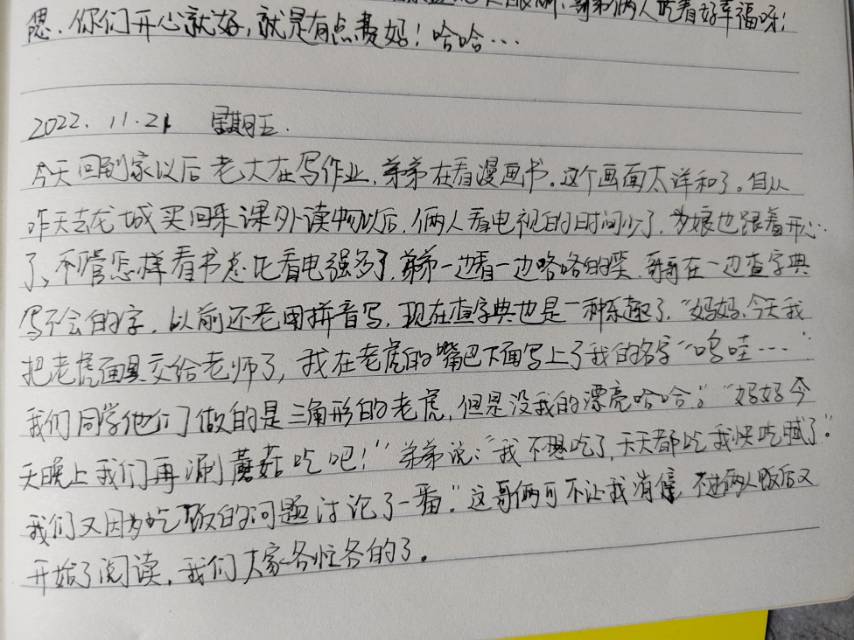 哥弟俩人吃着好幸福呀！
偲．你们开心就好，就是有点费妈！哈哈…
2022.11.21 星期五.
今天回到家以后老大在写作业，弟弟在看漫画书。这个画面太详和了。自从
昨天去龙城买回来课外读物以后，俩人看电视的时间少了，为娘也跟着开心
了，不管怎样看书总比看电强多了，弟弟一边看一边咯咯的笑，哥哥在一边查字典
写不会的字，以前还老用拼音写，现在查字典也是一种乐趣了，“妈妈，今天我
把老虎面具交给老师了，我在老虎的嘴巴下面写上了我的名字”“呜哇…”
我们同学他们做的是三角形的老虎，但是没我的漂亮哈哈”；“妈妈今
天晚上我们再涮蘑菇吃吧！”弟弟说：“我不想吃了，天天都吃我快吃腻了”。
我们又因为吃饭的问题讨论了一番。这哥俩可不让我消停，不过俩人饭后又
开始了阅读，我们大家各忙各的了。